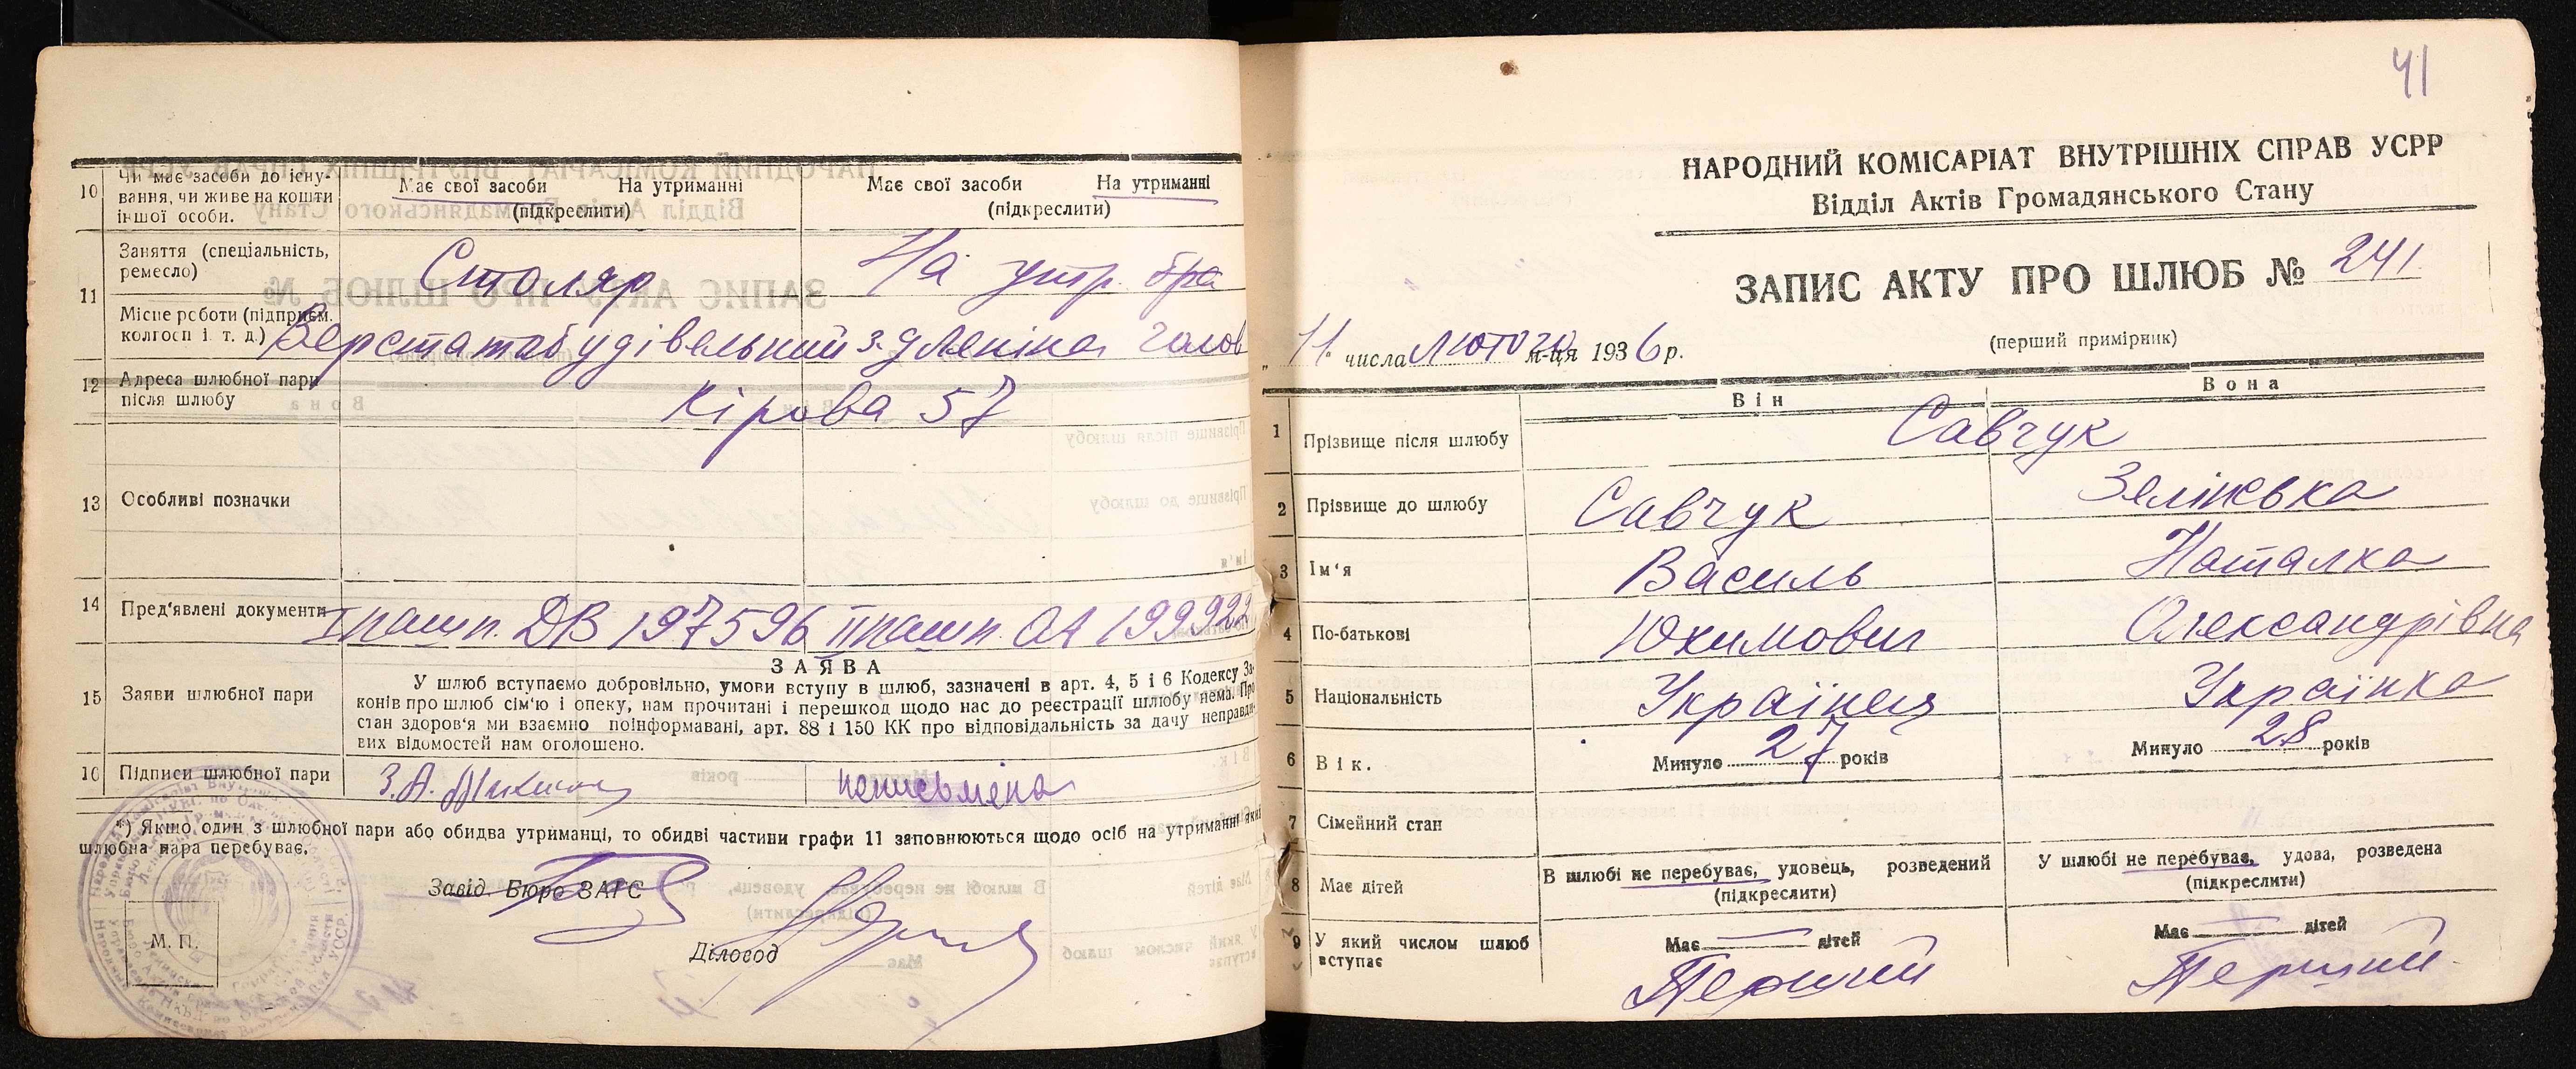 10 Чи має засоби до існу-
вання, чи живе на кошти
іншої особи.
Має свої засоби На утриманні
(підкреслити)
Має свої засоби На утриманні
(підкреслити)
11 Заняття (спеціальність,
ремесло)
Столяр
На утр. бра
Місце роботи (підприєм.
колгосп і. т. д.)
Верстатобудівельний з-д Леніна
12 Адреса шлюбної пари
після шлюбу
Кірова 57
13 Особливі позначки
14 Пред'явлені документи
I пашп. ДВ 197596 II пашп. ОА 199922
15 Заяви шлюбної пари
ЗАЯВА
У шлюб вступаємо добровільно, умови вступу в шлюб, зазначені в арт. 4, 5 і 6 Кодексу За-
конів про шлюб сім'ю і опеку, нам прочитані і перешкод щодо нас до реєстрації шлюбу нема. Про
стан здоров'я ми взаємно поінформавані, арт. 88 і 150 КК про відповідальність за дачу неправди-
вих відомостей нам оголошено.
16 Підписи шлюбної пари
З. А.
неписьмена
*) Якшо один з шлюбної пари або обидва утриманці, то обидві частини графи 11 заповнюються щодо осіб на утриманні яких
шлюбна пара перебуває.
Завід. Бюро ЗАГС
Діловод
М. П.
41
НАРОДНИЙ КОМІСАРІАТ ВНУТРІШНІХ СПРАВ УСРР
Відділ Актів Громадянського Стану
ЗАПИС АКТУ ПРО ШЛЮБ № 241
(перший примірник)
„11" числа лютого м-ця 1936 р.
Він
Вона
1 Прізвище після шлюбу
Савчук
2 Прізвище до шлюбу
Савчук
3 Ім'я
Василь
Наталка
4 По-батькові
Юхимович
Олександрівна
5 Національність
Українец
Українка
6 Вік.
Минуло 27 років
Минуло 28 років
7 Сімейний стан
8 Має дітей
В шлюбі не перебуває, удовець, розведений
(підкреслити)
У шлюбі не перебуває, удова, розведена
(підкреслити)
9 У який числом шлюб
вступає
Має — дітей
Має — дітей
Перший
Перший